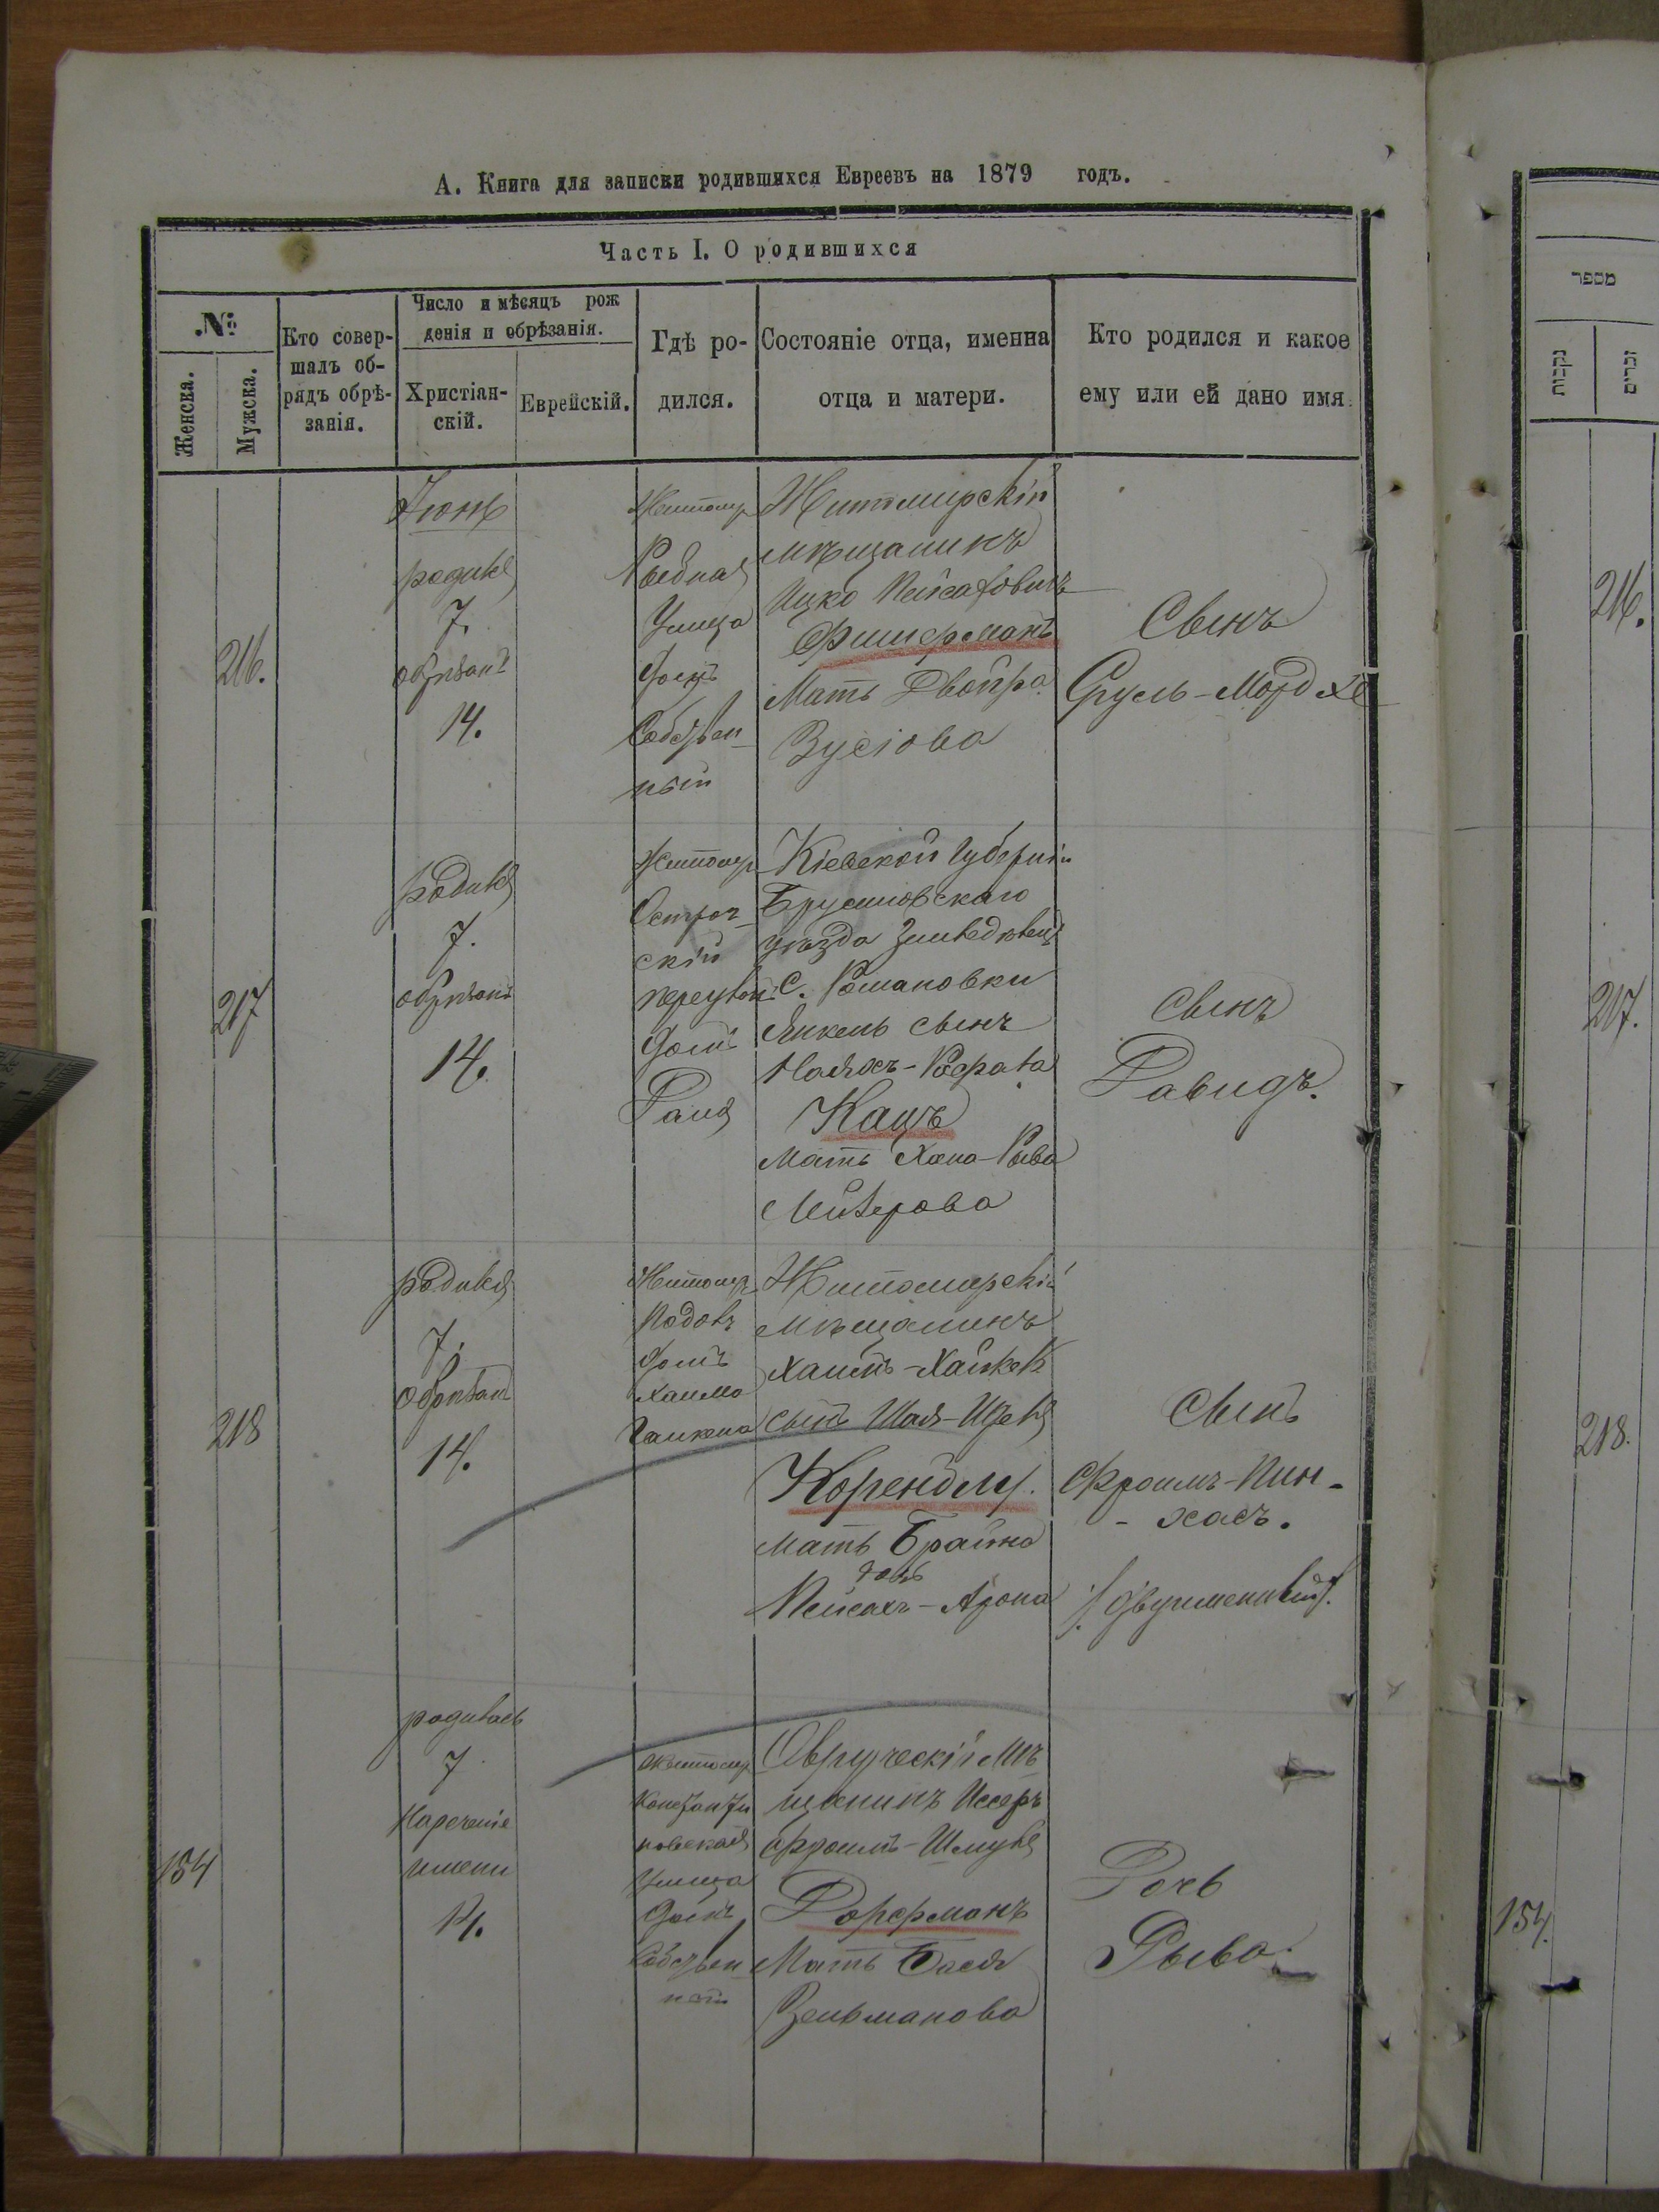 А. Книга для записки родившихся Евреевъ на 1879 годъ.
Часть I. О родившихся
№
Женска.
Мужска.
Кто совер-
шалъ об-
рядъ обрѣ-
занія.
Число и мѣсяцъ рож
денія и обрѣзанія.
Христіан-
скій.
Еврейскій.
Гдѣ ро-
дился.
Состояніе отца, именна
отца и матери.
Кто родился и какое
ему или ей дано имя.
216.
Іюнь
родился
7.
обрѣзанъ
14.
Житомир
Рыбная
Улица
домъ
Собствен-
ный
Житомирскій
мѣщанинъ
Ицко Пейсаховичъ
Фишерманъ
Мать Двойра
Зусіова
Сынъ
Сруль-Мордхе
217
родился
7.
обрѣзанъ
14.
Житомир
Острог-
скій
переулокъ
домъ
Кіевской Губерніи
уѣзда
С. Романовки
Янкель сынъ
Кацъ
Мать Хана-Рыва
Лейзерова
Сынъ
Давидъ.
218
родился
7.
обрѣзанъ
14.
Житомир
домъ
Хаима
Житомирскій
мѣщанинъ
Хаимъ-
сынъ Шая-
мать Брайна
дочь
Пейсахъ-Арона
Сынъ
Фроимъ-Пин-
-хасъ.
/двуименный/.
154
родилась
7
Нареченіе
имени
14.
Житомир
Константи
новская
Улица
домъ
Собствен
ный
Овручскій Мѣ
щанинъ Иссеръ
Фроимъ-Шмуля
Дорфманъ
Мать Бася
Зельманова
Дочь
Рыва.
מספר
נקבות
זכרים
216.
217.
218.
154.